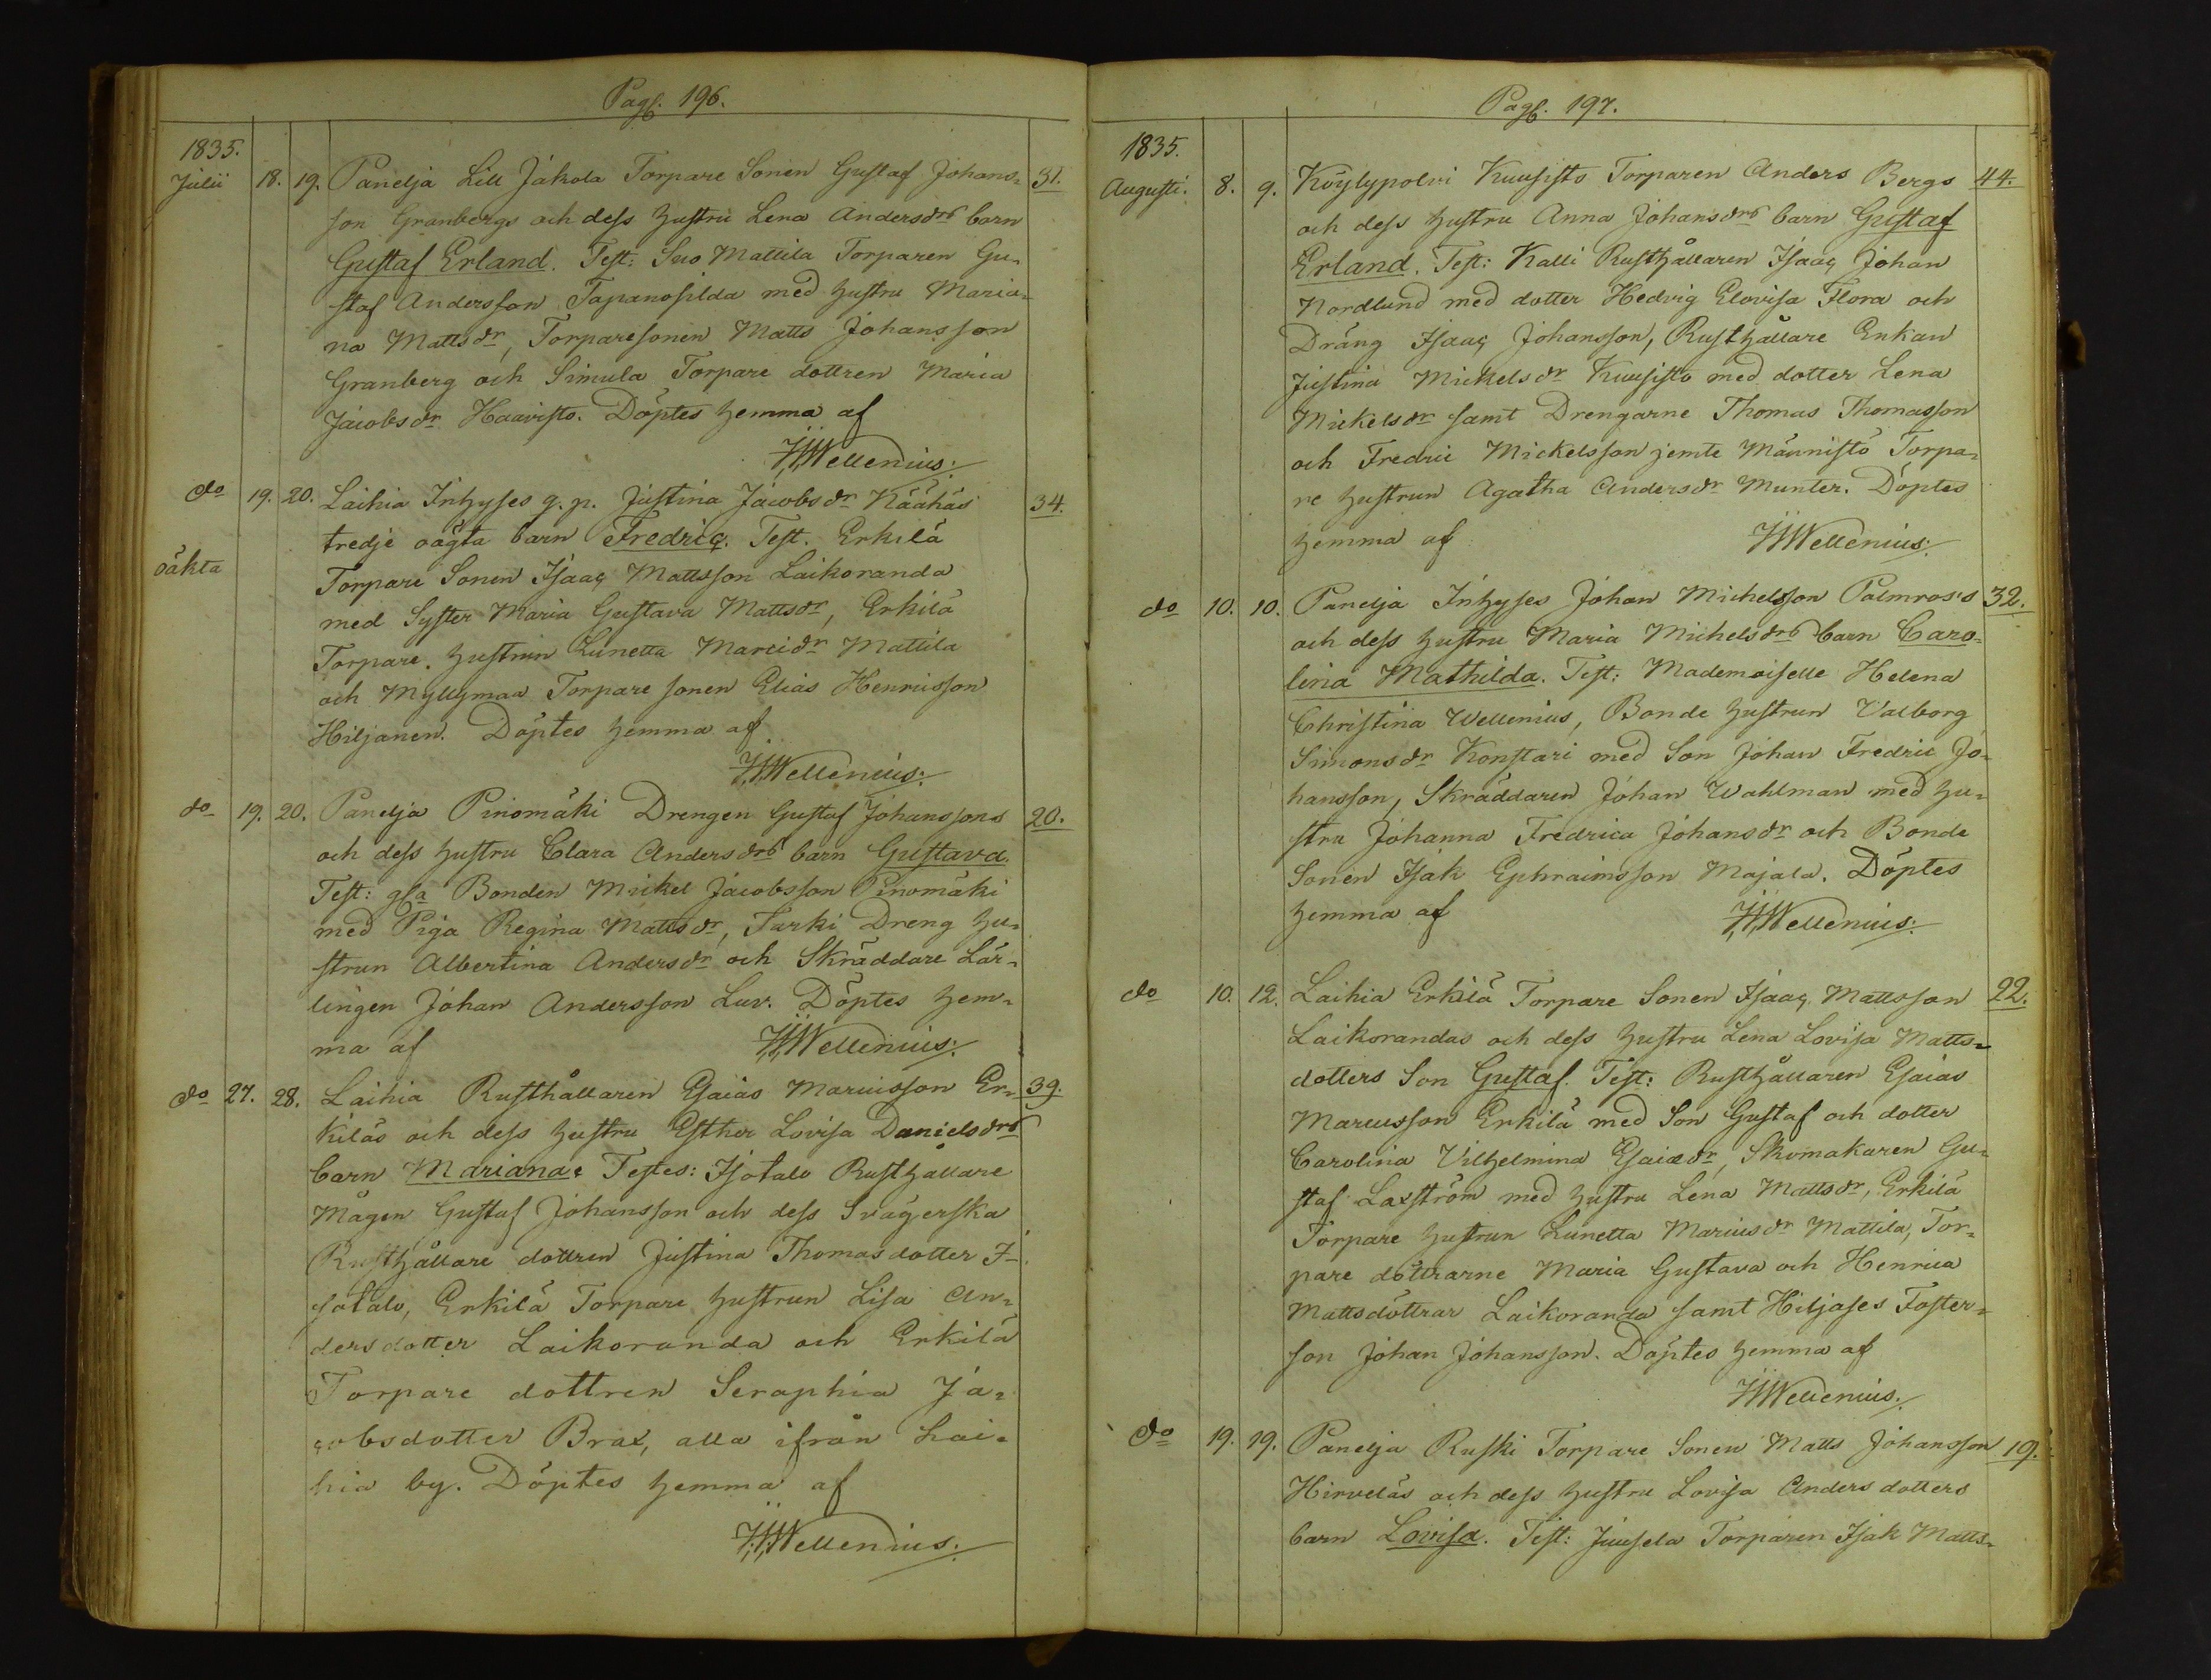 Pag. 196.
1835.
Julii 18. 19. Panelja Lill Jakola Torpare Sonen Gustaf Johans- 31.
son Granbergs och dess hustru Lena Andersdrs barn
Gustaf Erland. Test: Suo Mattila Torparen Gu-
staf Andersson Tapanosilda med hustru Maria-
na Mattsdr, Torparesonen Matts Johansson
Granberg och Simula Torpare dottren Maria
Jacobsdr Haavisto. Döptes hemma af
JWellenius.
do 19. 20. Laihia Inhyses g. p. Justina Jacobsdr Käähäs 34.
tredje oägta barn Fredric. Test. Erkilä
oäkta
Torpare Sonen Isaac Mattsson Laikoranda
med Syster Maria Gustava Mattsdr, Erkilä
Torpare hustrun Lunetta Marcidr Mattila
och Myllymaa Torpare sonen Elias Henricsson
Hiljanen. Döptes hemma af
JWellenius.
do 19. 20. Panelja Pinomäki Drengen Gustaf Johanssons 20.
och dess hustru Clara Andersdrs barn Gustava.
Test: gla Bonden Mickel Jacobsson Pinomäki
med Piga Regina Mattsdr, Turki Dreng hu-
strun Albertina Andersdr och Skräddare Lär-
lingen Johan Andersson Luv. Döptes hem-
ma af JWellenius.
do 27. 28. Laihia Rusthållaren Esaias Marcusson Er- 39.
kiläs och dess hustru Esther Lovisa Danielsdrs
barn Mariana. Testes: Isotalo Rusthållare
Mågen Gustaf Johansson och dess Svägerska
Rusthållare dottren Justina Thomasdotter I-
sotalo, Erkilä Torpare hustrun Lisa An-
dersdotter Laikoranda och Erkilä
Torpare dottren Seraphia Ja-
cobsdotter Brax, alla ifrån Lai-
hia by. Döptes hemma af
JWellenius.
Pag. 197.
1835.
Augusti. 8. 9. Köylypolvi Kuusisto Torparen Anders Bergs 44.
och dess hustru Anna Johansdrs barn Gustaf
Erland. Test: Kalli Rusthållaren Isaac Johan
Nordlund med dotter Hedvig Elovisa Flora och
Dräng Isaac Johansson, Rusthållare Enkan
Justina Mickelsdr Kuusisto med dotter Lena
Mickelsdr samt Drengarne Thomas Thomasson
och Fredric Mickelsson jemte Männistö Torpa-
re hustrun Agatha Andersdr Munter. Döptes
hemma af JWellenius.
do 10. 10. Panelja Inhyses Johan Michelsson Palmroos's 32.
och dess hustru Maria Michelsdrs barn Caro-
lina Mathilda. Test: Mademoiselle Helena
Christina Wellenius, Bonde hustrun Valborg
Simonsdr Konstari med Son Johan Fredric Jo-
hansson, Skräddaren Johan Wahlman med hu-
stru Johanna Fredrica Johansdr och Bonde
Sonen Isak Ephraimsson Majala. Döptes
hemma af JWellenius.
do 10. 12. Laihia Erkilä Torpare Sonen Isaac Mattsson 22.
Laikorandas och dess hustru Lena Lovisa Matts-
dotters Son Gustaf. Test: Rusthållaren Esaias
Marcusson Erkilä med Son Gustaf och dotter
Carolina Vilhelmina Esaiædr, Skomakaren Gu-
staf Laxström med hustru Lena Mattsdr, Erkilä
Torpare hustrun Lunetta Marcusdr Mattila, Tor-
pare döttrarne Maria Gustava och Henrica
Mattsdöttrar Laikoranda samt Hiljases Foster-
son Johan Johansson. Döptes hemma af
JWellenius.
do 19. 19. Panelja Ruski Torpare Sonen Matts Johansson 19.
Hirveläs och dess hustru Lovisa Anders dotters
barn Lovisa. Test: Juusela Torparen Isak Matts-